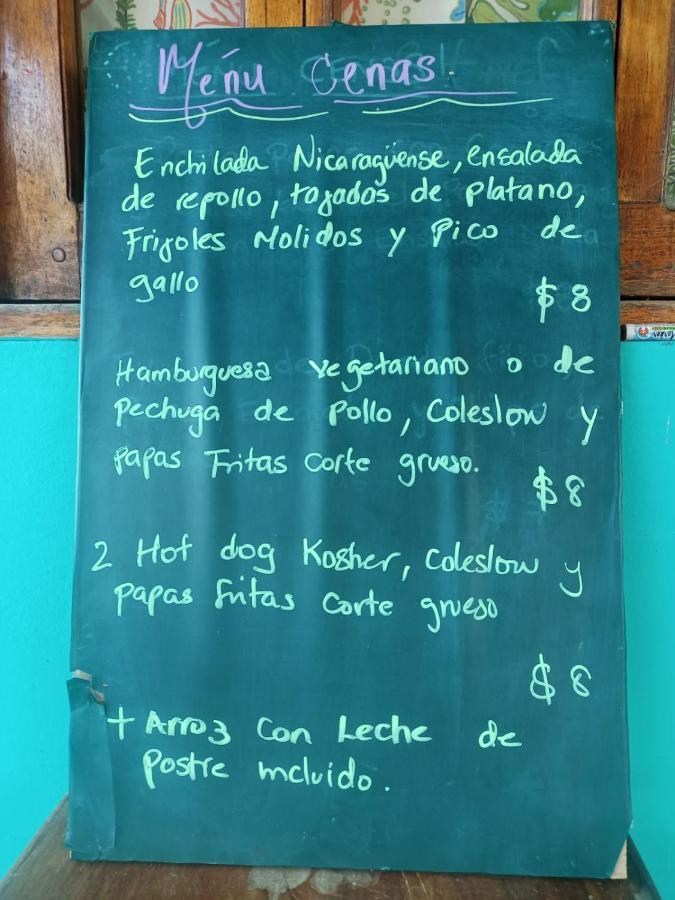 Menu Cenas
Enchilada Nicaragüense, ensalada
de repollo, tajadas de platano,
Frijoles Molidos y Pico de
gallo
$ 8
Hamburguesa vegetariano o de
Pechuga de Pollo, Coleslow y
papas Fritas corte grueso.
$ 8
2 Hot dog Kosher, Coleslow y
papas fritas corte grueso
$ 8
+ Arroz Con Leche de
Postre incluido.